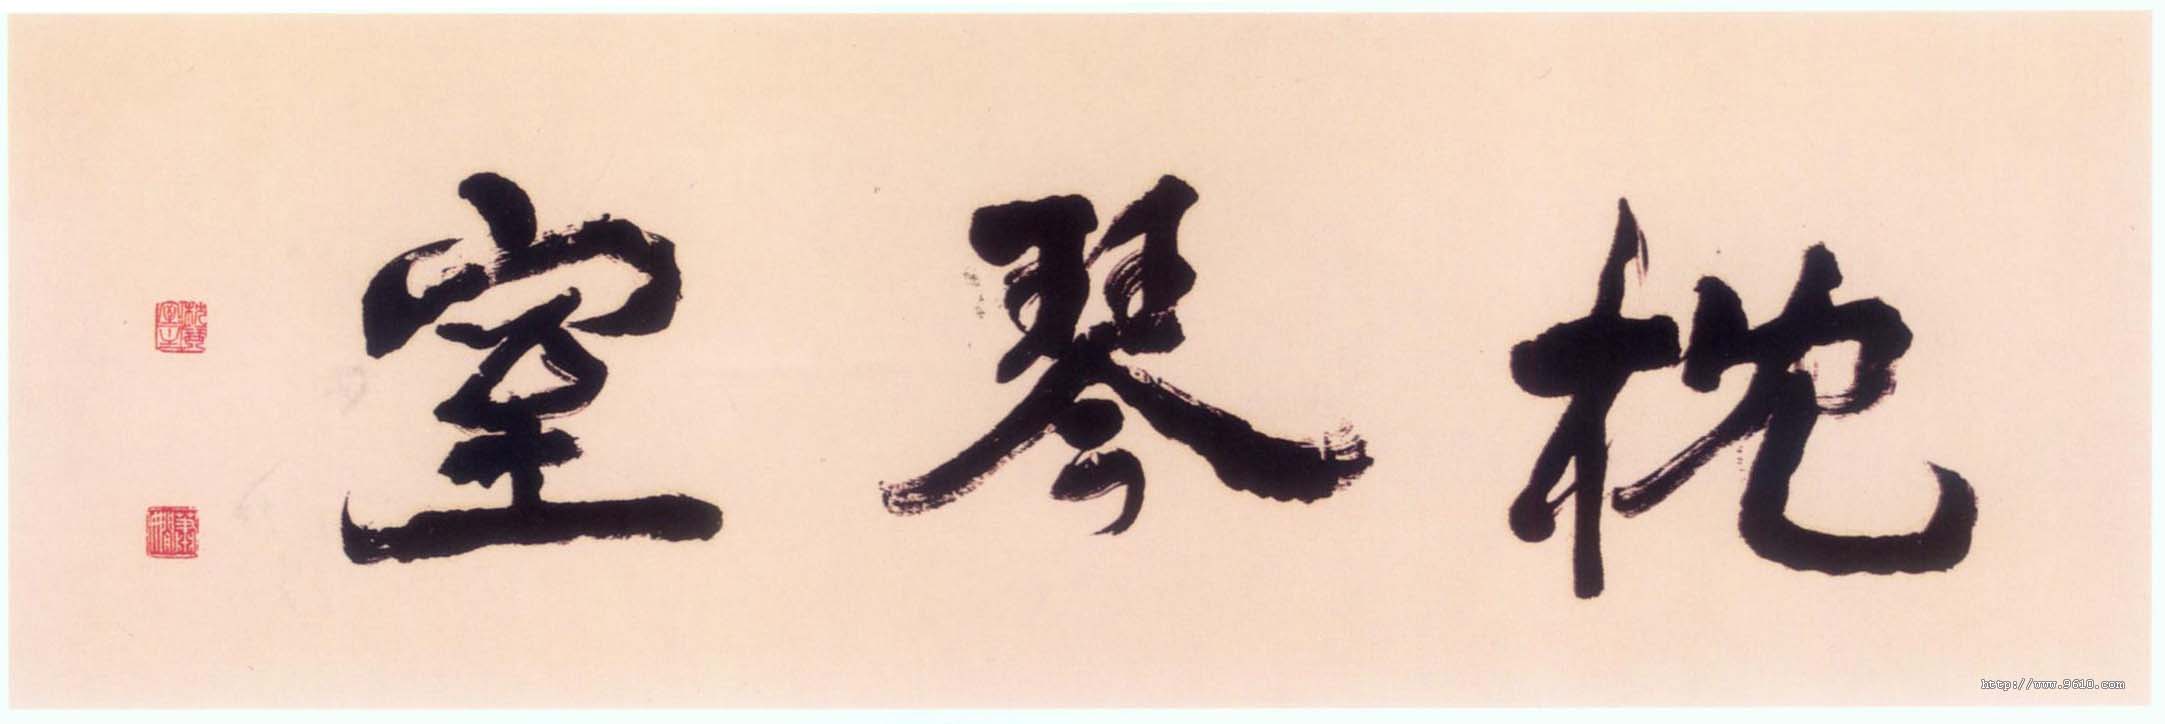 枕琴室
http://www.9610.com